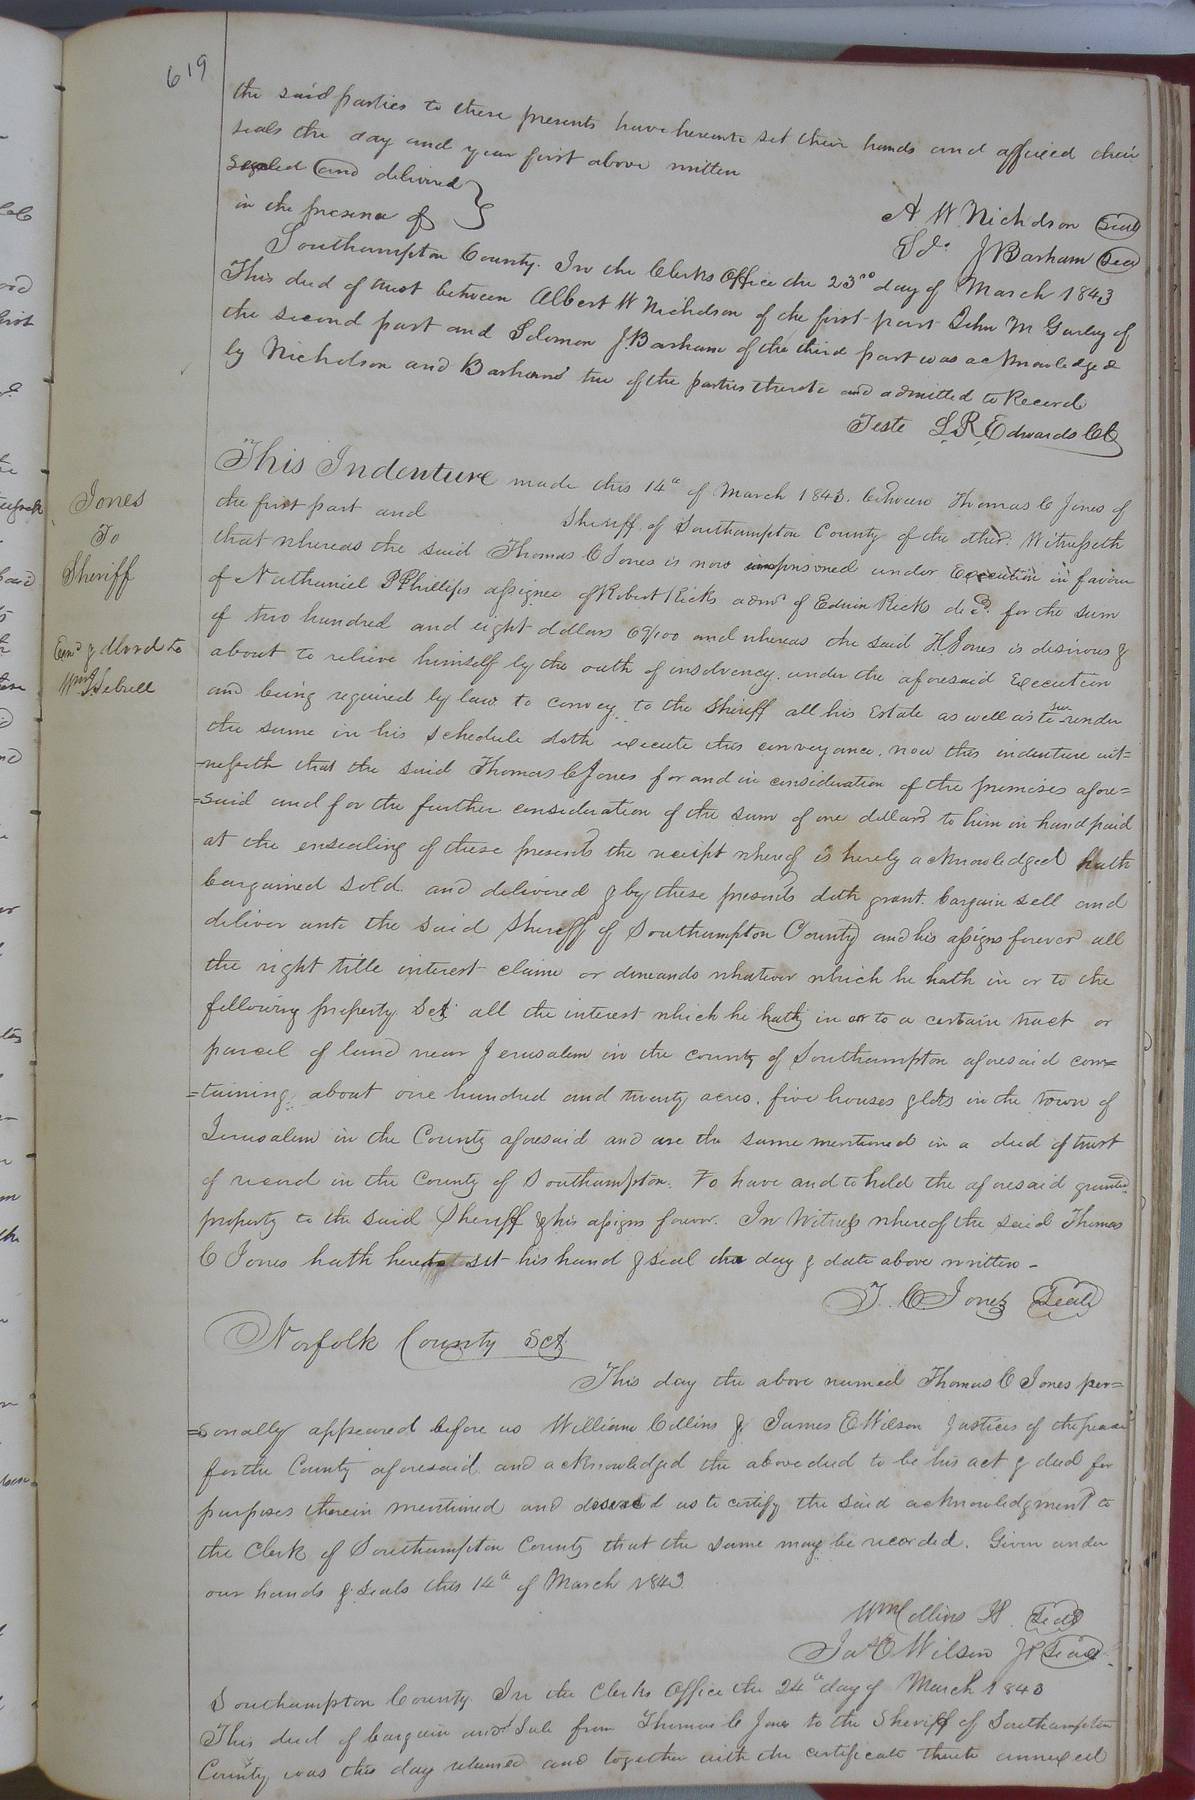 619
the said parties to these presents have hereunto set their hands and affixed their
seals the day and year first above written
Sealed and delivered
in the presence of
A W Nicholson Seal
Sol. J Barham Seal
Southampton County. In the Clerks Office the 23rd day of March 1843
This deed of trust between Albert W Nicholson of the first part John M Gurley of
the second part and Solomon J Barham of the third part was acknowledged
by Nicholson and Barham two of the parties thereto and admitted to Record
Teste L R Edwards CC
Jones
To
Sheriff
Exnd & dlvrd to
Wm J Sebrell
This Indenture made this 14th of March 1843. between Thomas C Jones of
the first part and Sheriff of Southampton County of the other. Witnesseth
that whereas the said Thomas C Jones is now imprisoned under Execution in favour
of Nathaniel P Phillips assignee of Robert Ricks admr of Edwin Ricks decd. for the sum
of two hundred and eight dollars 69/100 and whereas the said H. Jones is desirous &
about to relieve himself by the oath of insolvency. under the aforesaid Execution
and being required by law to convey to the Sheriff all his Estate as well as to surrender
the same in his schedule doth execute this conveyance. now this indenture wit=
=nesseth that the said Thomas C Jones for and in consideration of the premises afore=
=said and for the further consideration of the sum of one dollars to him in hand paid
at the ensealing of these presents the receipt whereof is hereby acknowledged hath
bargained sold and delivered & by these presents doth grant bargain sell and
deliver unto the said Sheriff of Southampton County and his assigns forever all
the right title interest claim or demands whatever which he hath in or to the
following property Sct. all the interest which he hath in or to a certain tract or
parcel of land near Jerusalem in the county of Southampton aforesaid con=
=taining about one hundred and twenty acres. five houses & lots in the town of
Jerusalem in the County aforesaid and are the same mentioned in a deed of trust
of record in the County of Southampton. To have and to hold the aforesaid granted
property to the said Sheriff & his assigns forever. In Witness whereof the said Thomas
C Jones hath hereto set his hand & seal the day & date above written -
T. C Jones Seal
Norfolk County Sct.
This day the above named Thomas C Jones per=
=sonally appeared before us William Collins & James E Wilson Justices of the peace
for the County aforesaid and acknowledged the above deed to be his act & deed for
purposes therein mentioned and desired us to certify the said acknowledgment to
the Clerk of Southampton County that the same may be recorded. Given under
our hands & seals this 14th of March 1843
Wm Collins JP. Seal
Jas E Wilson JP Seal
Southampton County. In the Clerks Office the 24th day of March 1843
This deed of bargain and Sale from Thomas C Jones to the Sheriff of Southampton
County was this day returned and together with the certificate thereto annexed